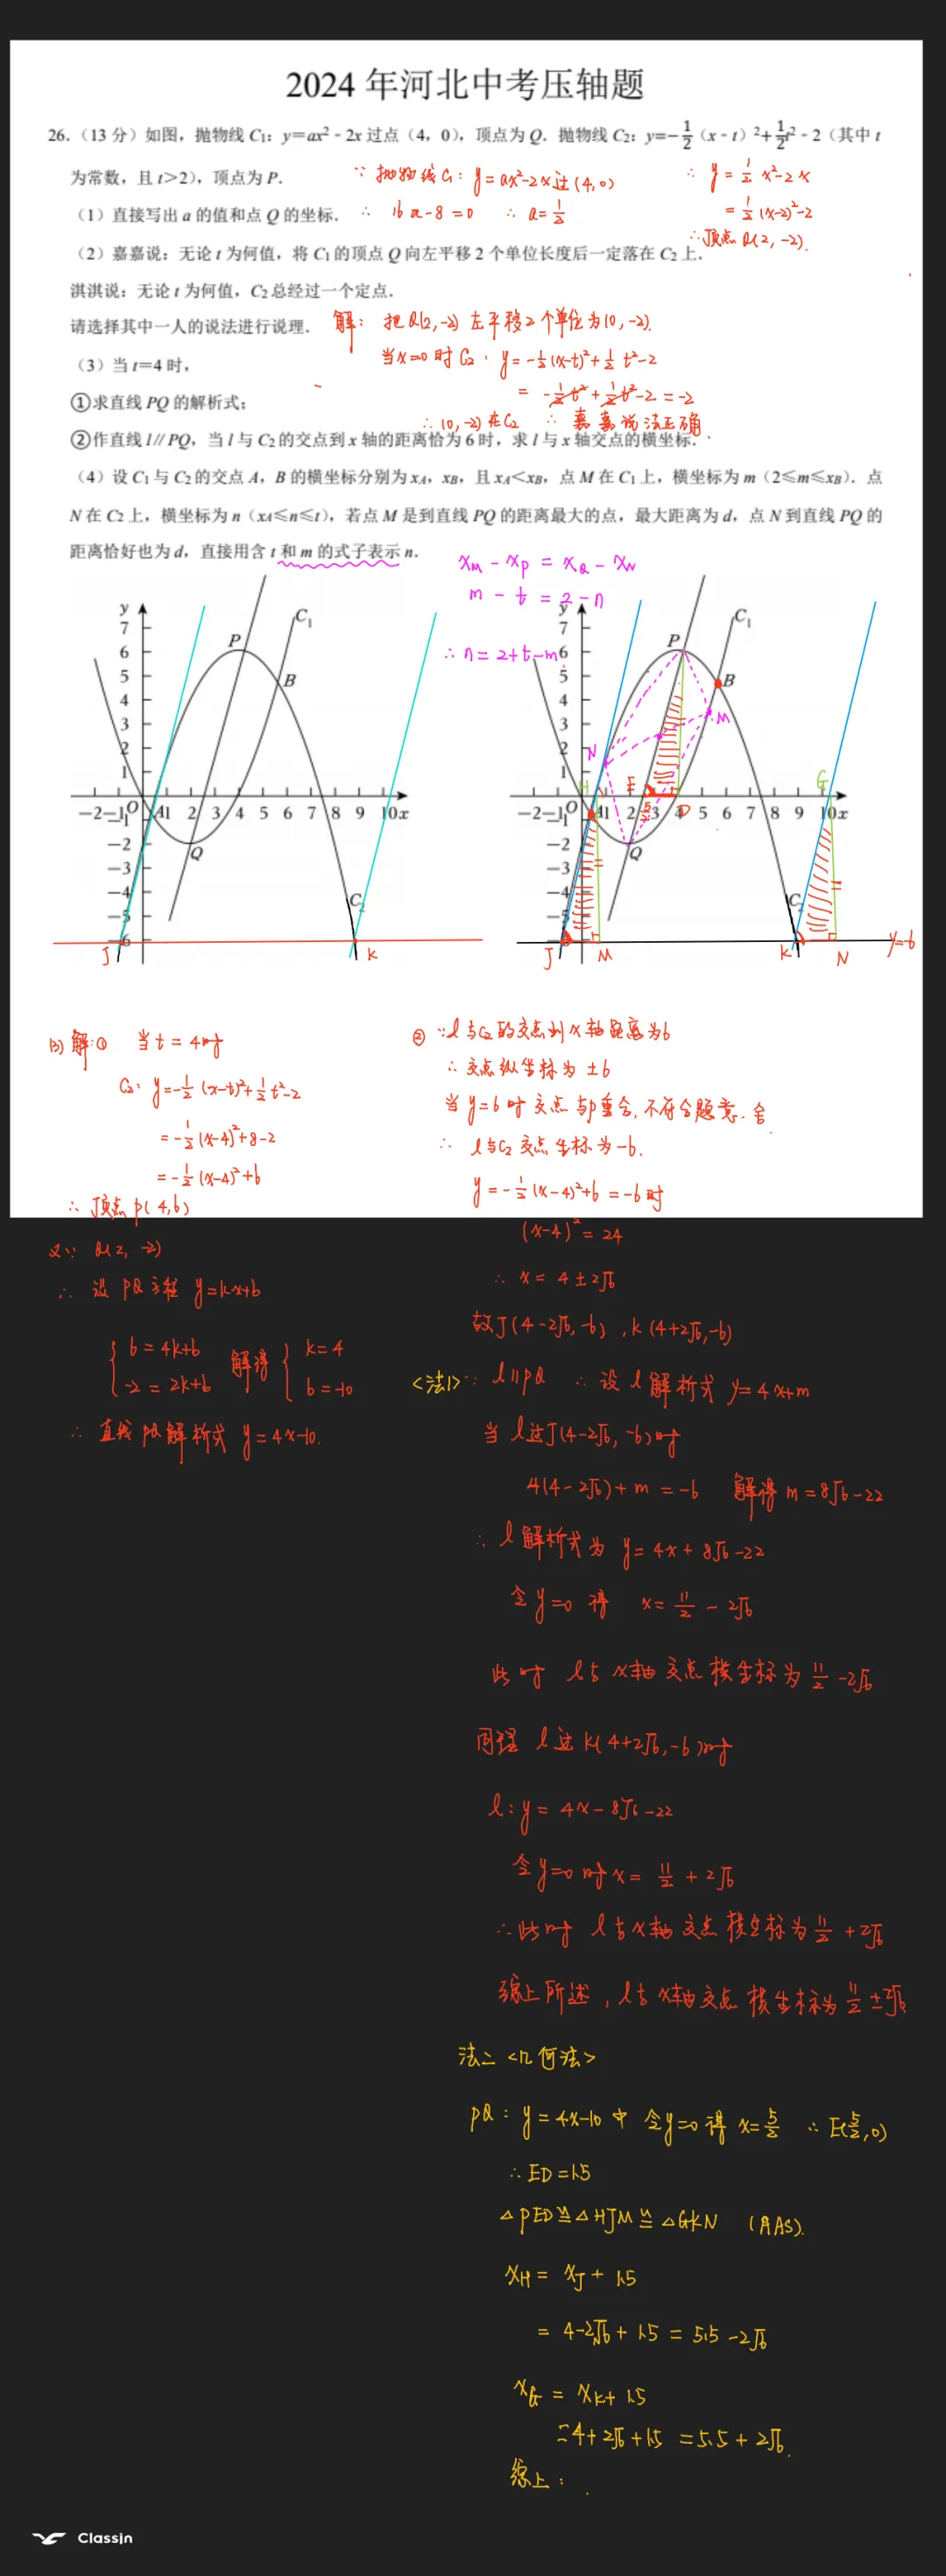 2024 年河北中考压轴题
26.（13 分）如图，抛物线 C₁：y=ax²﹣2x 过点（4，0），顶点为 Q．抛物线 C₂：y=﹣1/2（x﹣t）²+1/2t²﹣2（其中 t
为常数，且 t>2），顶点为 P．
∵ 抛物线C₁：y=ax²-2x过(4,0)
∴ y=1/2x²-2x
（1）直接写出 a 的值和点 Q 的坐标．
∴ 16a-8=0 ∴ a=1/2
=1/2(x-2)²-2
∴顶点Q(2,-2).
（2）嘉嘉说：无论 t 为何值，将 C₁的顶点 Q 向左平移 2 个单位长度后一定落在 C₂上．
淇淇说：无论 t 为何值，C₂总经过一个定点．
请选择其中一人的说法进行说理．
解：把Q(2,-2)左平移2个单位为(0,-2).
（3）当 t=4 时，
当x=0时 C₂：y=-1/2(x-t)²+1/2t²-2
①求直线 PQ 的解析式；
=-1/2t²+1/2t²-2=-2
∴(0,-2)在C₂ ∴嘉嘉说法正确.
②作直线 l∥PQ，当 l 与 C₂的交点到 x 轴的距离恰为 6 时，求 l 与 x 轴交点的横坐标．
（4）设 C₁与 C₂的交点 A，B 的横坐标分别为 xA，xB，且 xA<xB，点 M 在 C₁上，横坐标为 m（2≤m≤xB）．点
N 在 C₂上，横坐标为 n（xA≤n≤t），若点 M 是到直线 PQ 的距离最大的点，最大距离为 d，点 N 到直线 PQ 的
距离恰好也为 d，直接用含 t 和 m 的式子表示 n．
xM-xP=xQ-xN
m-t=2-n
∴n=2+t-m.
y
7
6
5
4
3
2
1
−2 −1 O A 1 2 3 4 5 6 7 8 9 10 x
−1
−2
−3
−4
−5
−6
P
C₁
B
Q
C₂
J
K
y
7
6
5
4
3
2
1
−2 −1 O A 1 2 5/2 3 4 5 6 7 8 9 10 x
−1
−2
−3
−4
−5
P
C₁
B
M
N
H
E
D
G
Q
C₂
J
M
K
N
y=-6
(3)解：① 当t=4时
C₂：y=-1/2(x-t)²+1/2t²-2
=-1/2(x-4)²+8-2
=-1/2(x-4)²+6
∴ 顶点P(4,6)
又∵ Q(2,-2)
∴ 设PQ方程 y=kx+b
{6=4k+b
-2=2k+b 解得 {k=4
b=-10
∴ 直线PQ解析式 y=4x-10.
② ∵l与C₂的交点到x轴距离为6
∴交点纵坐标为±6
当y=6时交点与P重合,不符合题意.舍.
∴ l与C₂交点坐标为-6.
y=-1/2(x-4)²+6=-6时
(x-4)²=24
∴ x=4±2√6
故J(4-2√6,-6),K(4+2√6,-6)
<法1> ∵ l∥PQ ∴ 设l解析式 y=4x+m
当l过J(4-2√6,-6)时
4(4-2√6)+m=-6 解得m=8√6-22
∴ l解析式为 y=4x+8√6-22
令y=0得 x=11/2-2√6
此时 l与x轴交点横坐标为11/2-2√6
同理 l过K(4+2√6,-6)时
l：y=4x-8√6-22
令y=0时x=11/2+2√6
∴此时 l与x轴交点横坐标为11/2+2√6
综上所述, l与x轴交点横坐标为11/2±2√6
法二<几何法>
PQ：y=4x-10中 令y=0得x=5/2 ∴E(5/2,0)
∴ED=1.5
△PED≌△HJM≌△GKN (AAS).
xH=xJ+1.5
=4-2√6+1.5=5.5-2√6
xG=xK+1.5
=4+2√6+1.5=5.5+2√6.
综上：
ClassIn